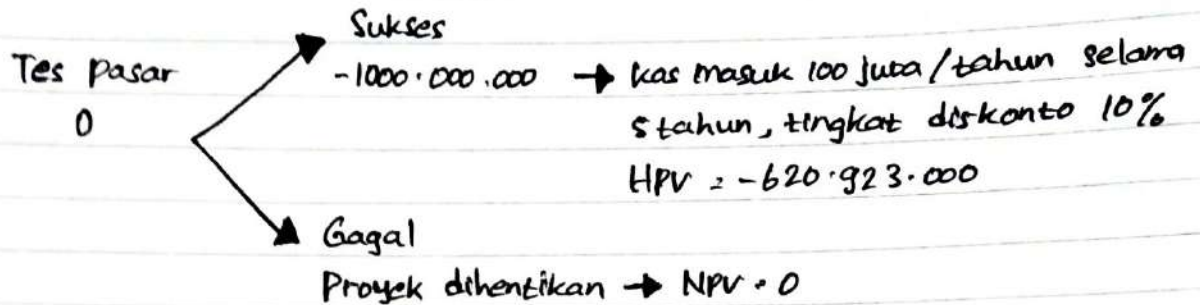 Sukses
Tes pasar
-1000.000.000 → kas masuk 100 juta/tahun selama
0
5 tahun, tingkat diskonto 10%
HPV = -620.923.000
Gagal
Proyek dihentikan → NPV = 0